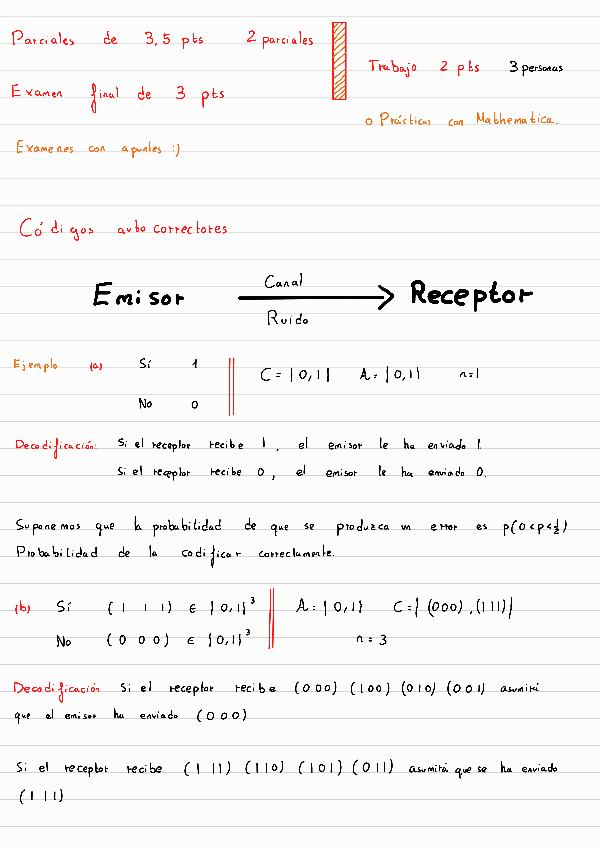 Parciales de 3,5 pts 2 parciales
Trabajo 2 pts 3 personas
Examen final de 3 pts
o Prácticas con Mathematica.
Examenes con apuntes :)
Códigos autocorrectores
Emisor Canal Receptor
Ruido
Ejemplo (a) Sí 1
C = {0,1} A = {0,1} n=1
No 0
Decodificación: Si el receptor recibe 1, el emisor le ha enviado 1.
Si el receptor recibe 0, el emisor le ha enviado 0.
Suponemos que la probabilidad de que se produzca un error es p(0<p<½)
Probabilidad de la codificar correctamente.
(b) Sí (1 1 1) ∈ {0,1}³ A = {0,1} C={(000),(111)}
No (0 0 0) ∈ {0,1}³ n = 3
Decodificación Si el receptor recibe (000) (100) (010) (001) asumirá
que el emisor ha enviado (000)
Si el receptor recibe (111) (110) (101) (011) asumirá que se ha enviado
(111)